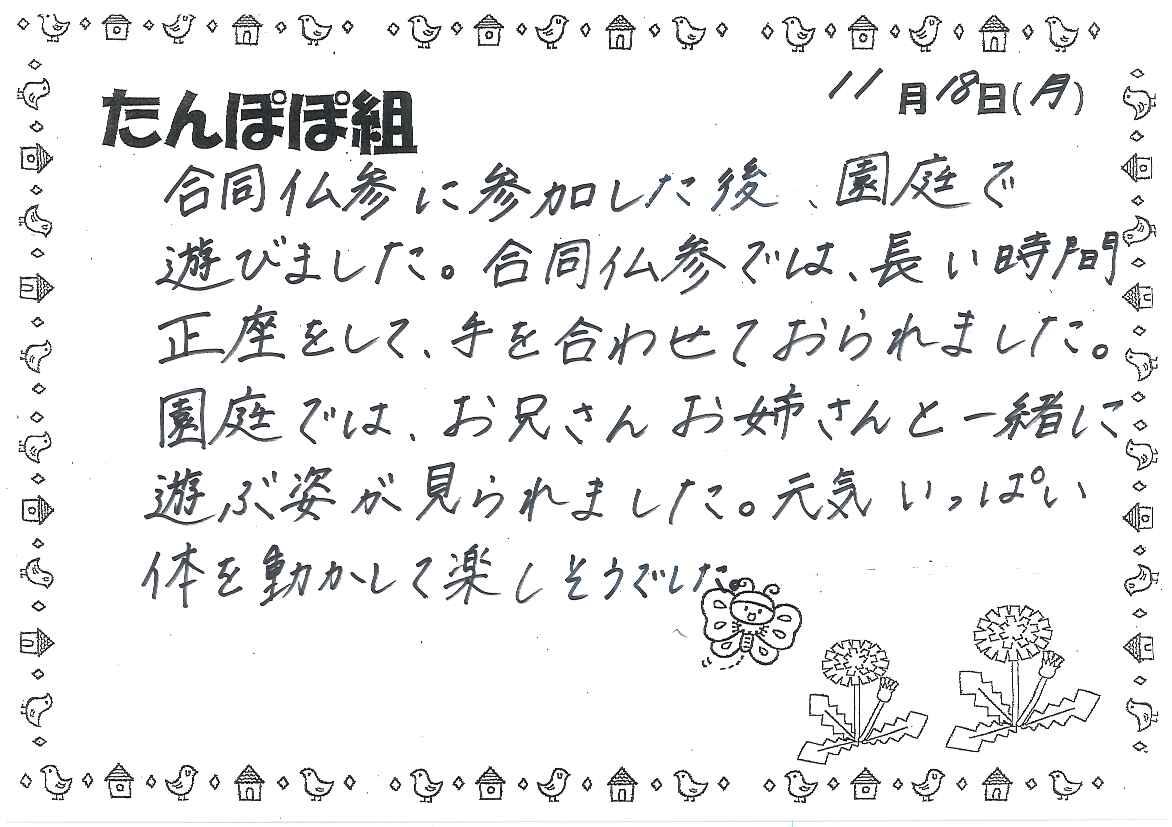 11月18日(月)
たんぽぽ組
合同仏参に参加した後、園庭で
遊びました。合同仏参では、長い時間
正座をして、手を合わせておられました。
園庭では、お兄さんお姉さんと一緒に
遊ぶ姿が見られました。元気いっぱい
体を動かして楽しそうでした。